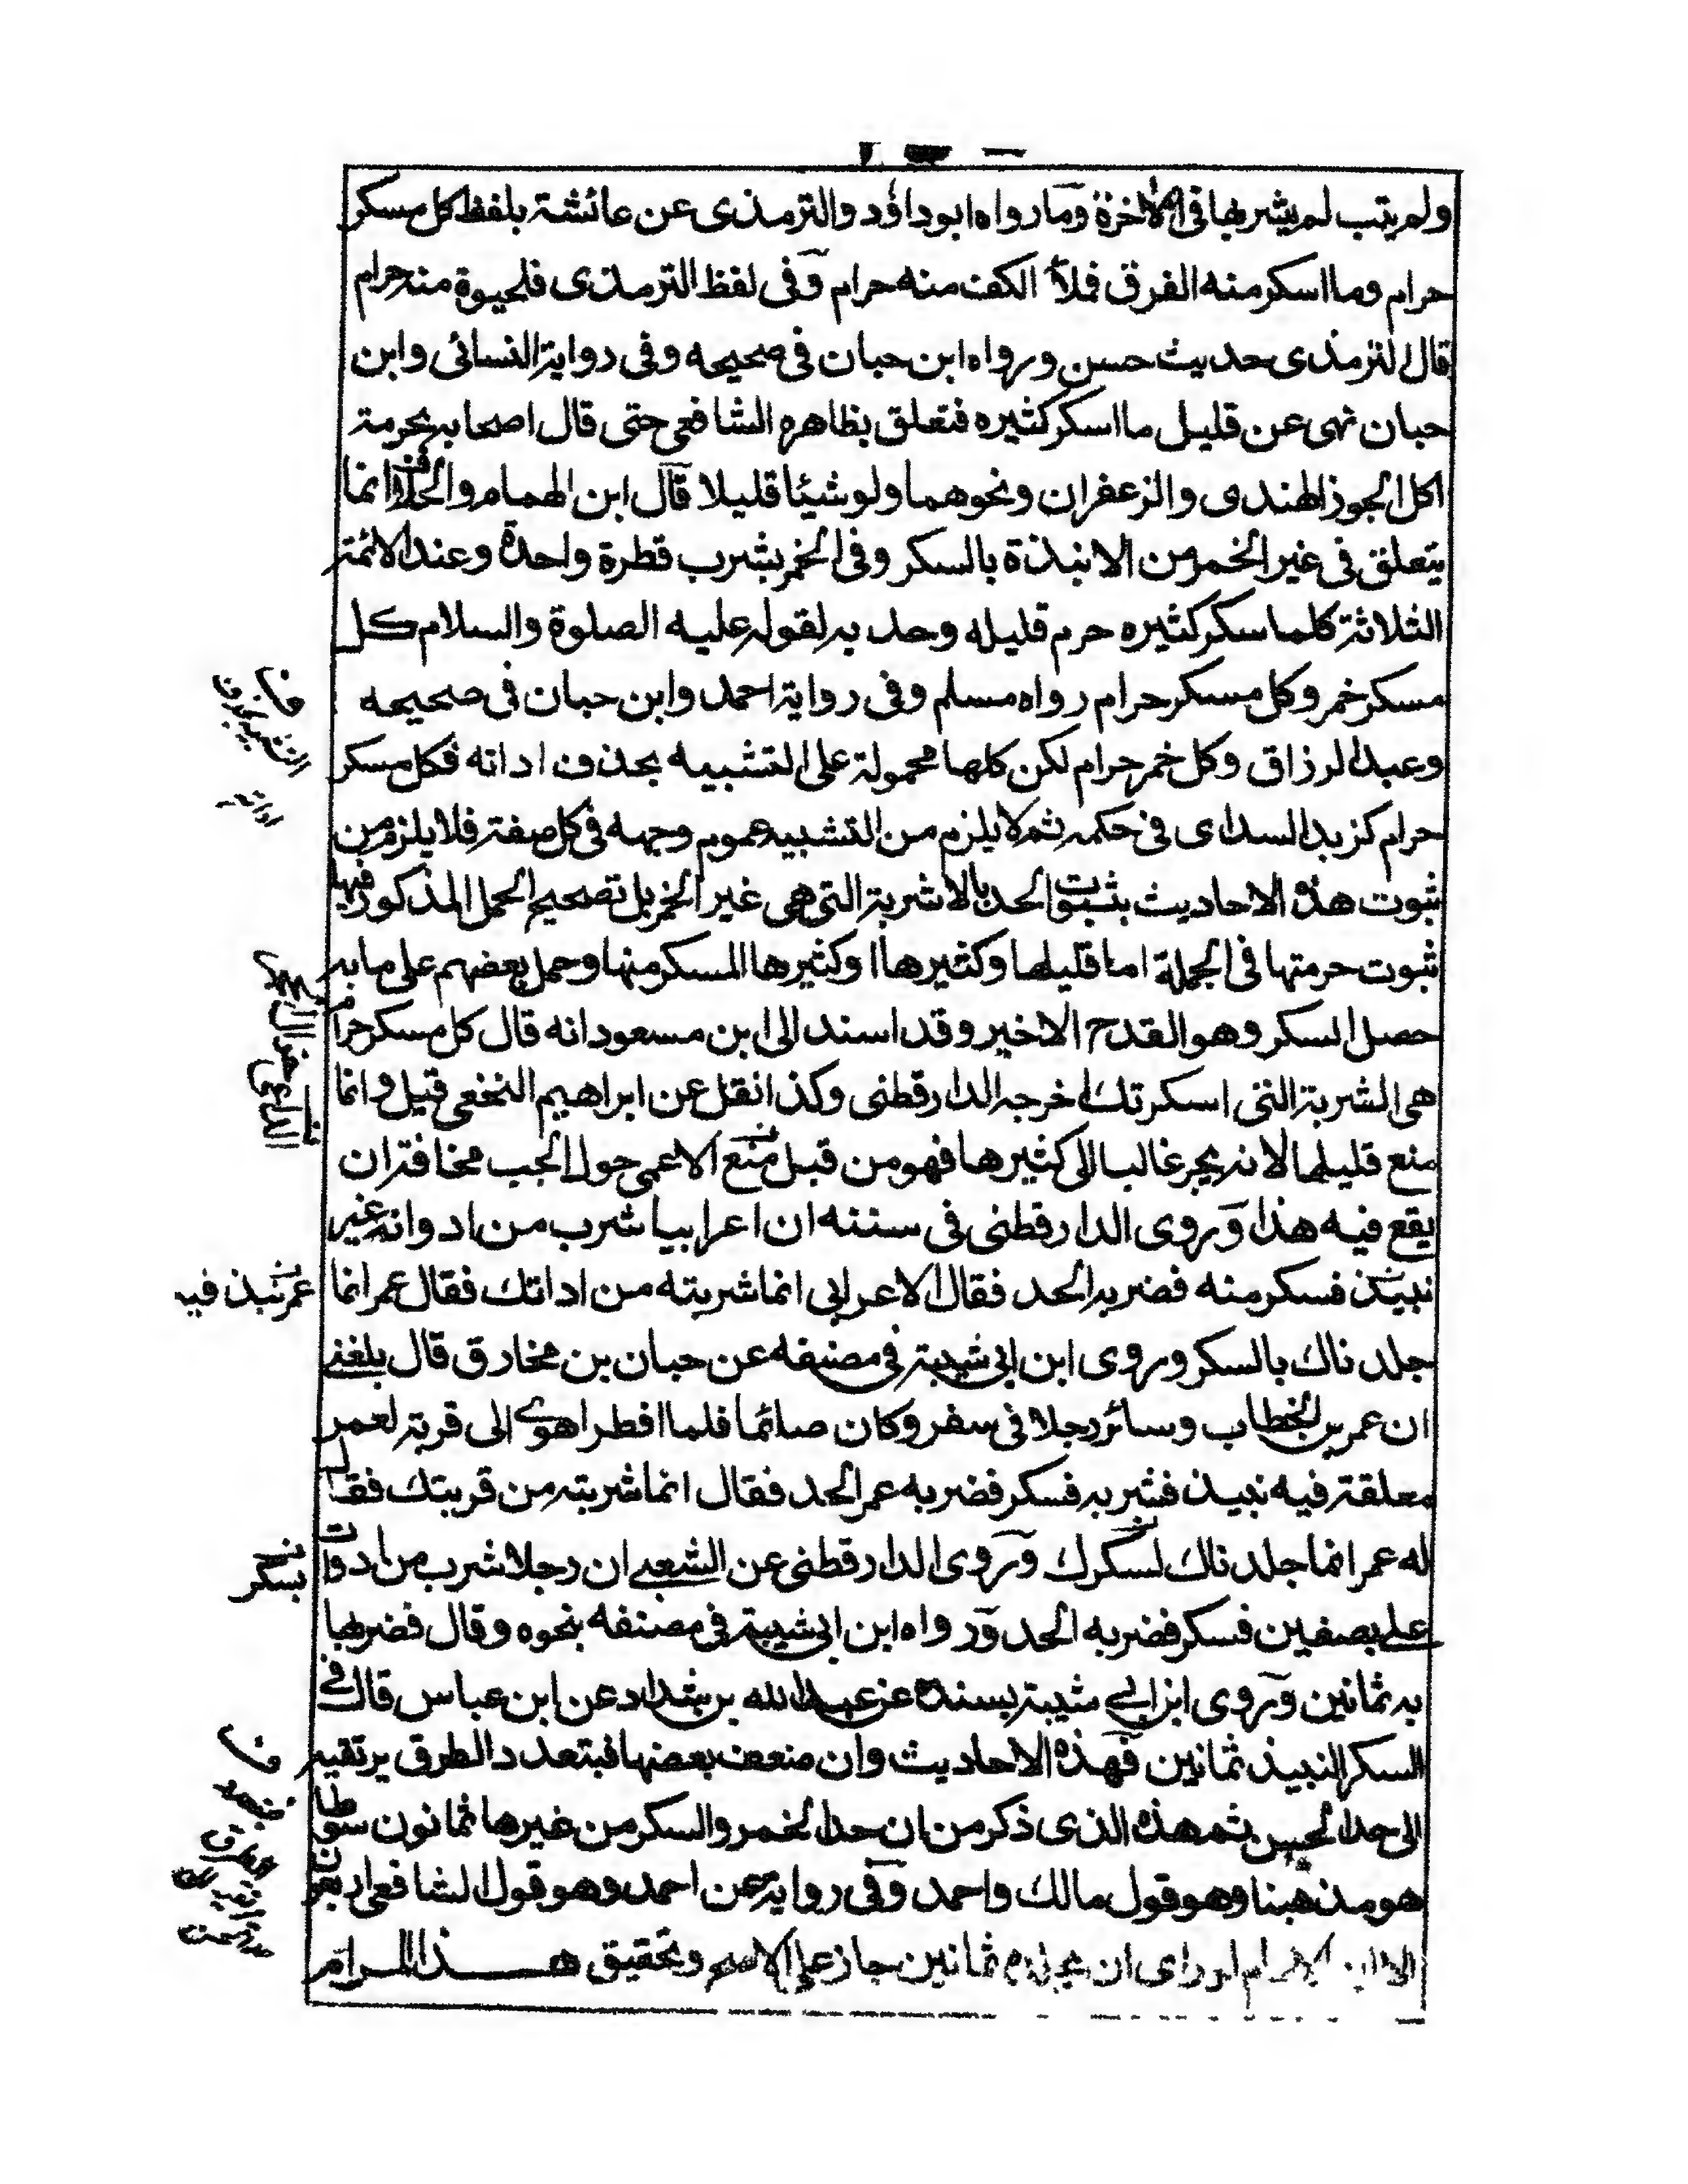 ولم يتب لم يشربها فى الاخرة وما رواه ابو داؤد والترمذى عن عائشة بلفظ كل مسكر
حرام وما اسكر منه الفرق فملأ الكف منه حرام وفى لفظ الترمذى فلحيوة منه حرام
قال الترمذى حديث حسن ورواه ابن حبان فى صحيحه وفى رواية النسائى وابن
حبان نهى عن قليل ما اسكر كثيره فتعلق بظاهره الشافعى حتى قال اصحابه بحرمة
اكل الجوز الهندى والزعفران ونحوهما ولو شيئا قليلا قال ابن الهمام والحد انما
يتعلق فى غير الخمر من الانبذة بالسكر وفى الخمر بشرب قطرة واحدة وعند الائمة
الثلاثة كلما سكر كثيره حرم قليله وحد به لقوله عليه الصلوة والسلام كل
مسكر خمر وكل مسكر حرام رواه مسلم وفى رواية احمد وابن حبان فى صحيحه
وعبد الرزاق وكل خمر حرام لكن كلها محمولة على التشبيه بحذف اداته فكل مسكر
حرام كزيد السداى فى حكمه ثم لا يلزم من التشبيه عموم وجهه فى كل صفة فلا يلزم من
ثبوت هذه الاحاديث بثبوت الحد بالاشربة التى هى غير الخمر بل تصحيح الحمل المذكور فيها
ثبوت حرمتها فى الجملة اما قليلها وكثيرها او كثيرها المسكر منها وحمل بعضهم على ما به
حصل السكر وهو القدح الاخير وقد اسند الى ابن مسعود انه قال كل مسكر حرام
هى الشربة التى اسكرتك اخرجه الدارقطنى وكذا نقل عن ابراهيم النخعى قيل وانما
منع قليلها لانه يجر غالبا الى كثيرها فهو من قبل منع الاعمى حول الجب مخافة ان
يقع فيه هذا وروى الدارقطنى فى سننه ان اعرابيا شرب من ادوانه غير
نبيذ فسكر منه فضربه الحد فقال الاعرابى انما شربته من اداتك فقال عمر انما
عمر نبيذ فيه
جلدناك بالسكر وروى ابن ابى شيبة فى مصنفه عن حبان بن مخارق قال بلغنى
ان عمر بن الخطاب وسائر رجلا فى سفر وكان صائما فلما افطر اهوى الى قربة لعمر
معلقة فيه نبيذ فشربه فسكر فضربه عمر الحد فقال انما شربته من قربتك فقال
له عمر انما جلدناك لسكرك وروى الدارقطنى عن الشعبى ان رجلا شرب من ادوات
بسكر
على بصفين فسكر فضربه الحد ورواه ابن ابى شيبة فى مصنفه بنحوه وقال فضربها
به ثمانين وروى ابن ابى شيبة بسنده عن عبد الله بن شداد عن ابن عباس قال فى
السكر النبيذ ثمانين فهذه الاحاديث وان ضعف بعضها فبتعدد الطرق يرتقيه
الى حد الحسن ثم هذه الذى ذكر من ان حد الخمر والسكر من غيرها ثمانون سوطا
هو مذهبنا وهو قول مالك واحمد وفى رواية عن احمد وهو قول الشافعى اربعون
الامام لو راى ان يجلده ثمانين جاز على الاسم وتحقيق هذا المرام